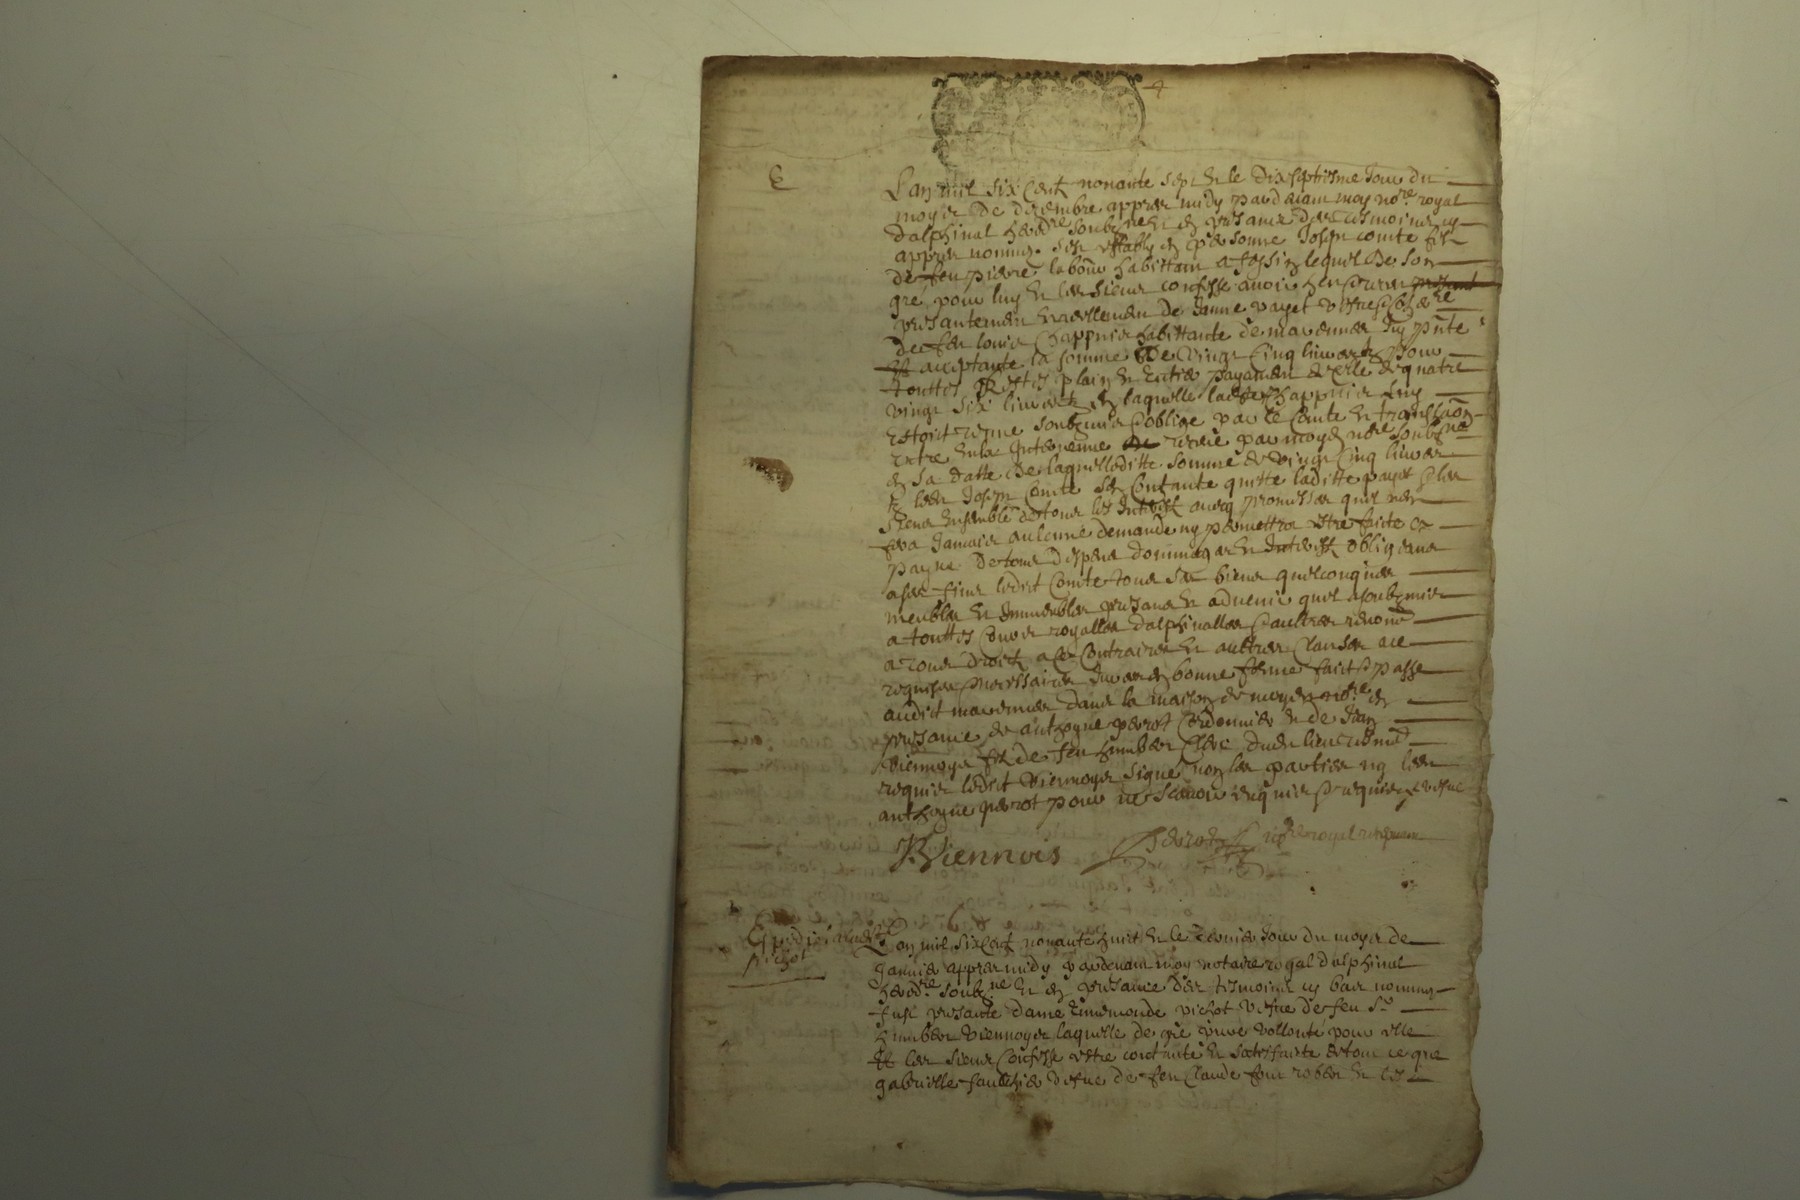 4
L'an mil six centz nonante sept et le dixseptiesme jour du
moys de decembre appres midy pardevant moy no.re royal
dalphinal hered.re soubz.ne et en presance des tesmoins cy
appres nommes s'est estably en personne Joseph comte filz
de feu pierre labou.r habittant a lequel de son
gre pour luy et les siens confesse avoir heu et receu
presantement et reellement de Janne payet vefve et her.re
de feu louis chappuis habittante de marennes icy p.nte
et acceptante la somme de vingt cinq livres pour
touttes restes plain et entier payement de celle de quatre
vingt six livres en laquelle lad chappuis luy
estoit tenue soubzmise et obligé par le comte et transa.on
entre eulx intervenue receue par moyd no.re soubz.ne
en sa datte de laquelleditte somme de vingt cinq livres
led Joseph comte s'en contante quitte laditte payet et les
siens ensemble de tous les interestz avecq promesse quil n'en
fera jamais aulcune demande ny permettra estre faicte a
payne de tous despens dommages et interestz obligeant
a ses fins ledit comte tous ses biens quelconques
meubles et immeubles presans et advenir quil a soubzmis
a touttes cours royalles dalphinalles et aultres renoncé
a tous droictz a ce contraires et aultres clauses a ce
requises et necessaires en bonne forme faict et passé
audit marennes dans la maison de moyd no.re en
presance de anthoyne perrot cordonnier et de Jean
Viennoys filz de feu humbert clerc dud lieu tesmo.
requis ledit Viennoys signé non les parties ny led
anthoyne perrot pour ne scavoir enquis et requis
J Viennois
no.re royal
Expedié a lad
pichot
L'an mil six centz nonante huict et le jour du moys de
Janvier appres midy pardevant moy notaire royal dalphinal
hered.re soubz.ne et en presance des tesmoins cy bas nommes
fust presante dame ennemonde pichot vefve de feu S.r
humbert Viennoys laquelle de gre pure vollonté pour elle
et les siens confesse estre contante et satisfaicte de tout ce que
gabrielle vefve de feu Claude et les